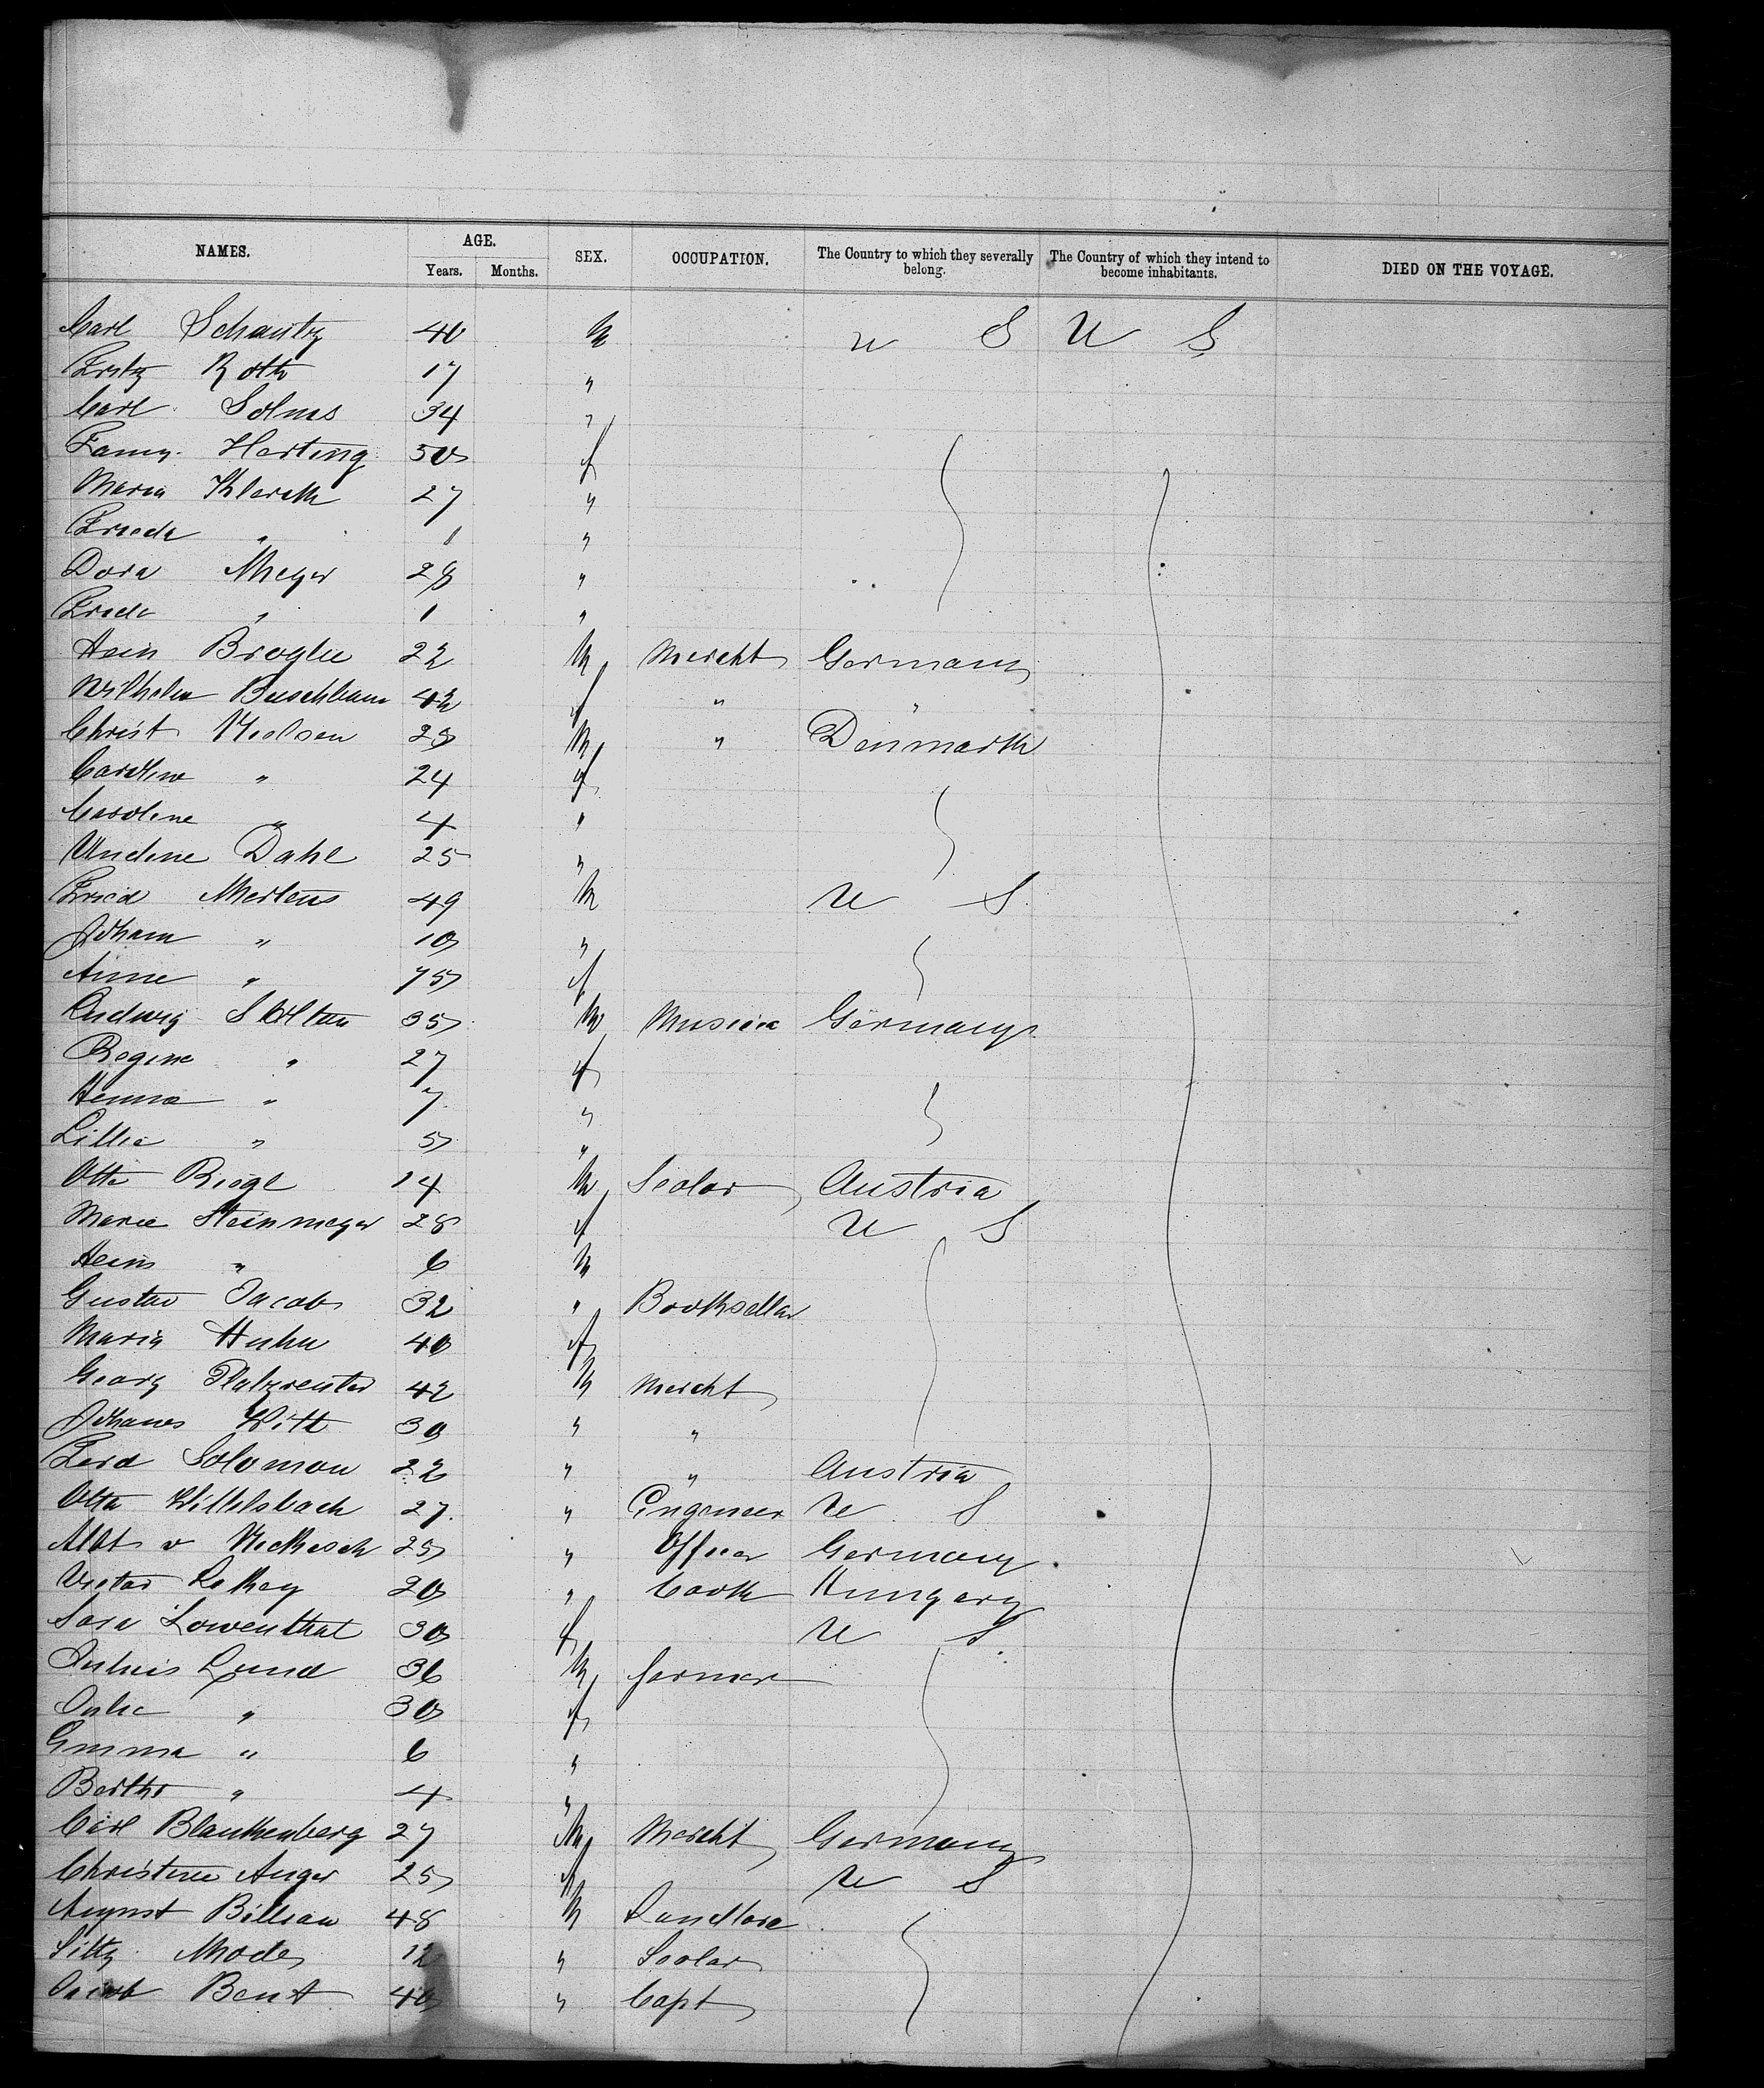 NAMES. AGE. SEX. OCCUPATION. The Country to which they severally belong. The Country of which they intend to become inhabitants. DIED ON THE VOYAGE.
Years. Months.
Carl Schantz 40 M U S U S
Fritz Roth 17 "
Carl Solms 34 "
Fanny Herting 50 f
Maria Klarck 27 "
Frieda " 1 "
Dora Meyer 28 "
Frieda " 1 "
Hein 22 M Mercht Germany
Wilhelm Buschbaum 42 f " "
Christ Nielsen 28 M " Denmark
Caroline " 24 f
Caroline " 4 "
Undine Dahl 25 "
Fried Mertens 49 M U S
Johann " 10 "
Anne " 75 f
Ludwig Stolten 35 M Musicia Germany
Regine " 27 f
Henna " 7 "
Lillie " 5 "
Otto Riegl 14 M Scolar Austria
Marie Steinmeyer 28 f U S
Hein " 6 M
Gustav Jacobs 32 " Bookseller
Maria Huhn 40 f
Georg Platzreuter 42 M Mercht
Johannes Witt 30 " "
Ferd Solomon 22 " " Austria
Otto Wittelsbach 27 " Engineer U S
Albt v 25 " Officer Germany
Victor 20 " Cook Hungary
Sara Lowenthal 30 f U S
Julius Lund 36 M farmer
Julie " 30 f
Emma " 6 "
Bertha " 4 "
Carl Blankenberg 27 M Mercht Germany
Christine Anger 25 f U S
August Billian 48 M Landlord
Mode 12 " Scolar
Jacob Bent 40 " Capt